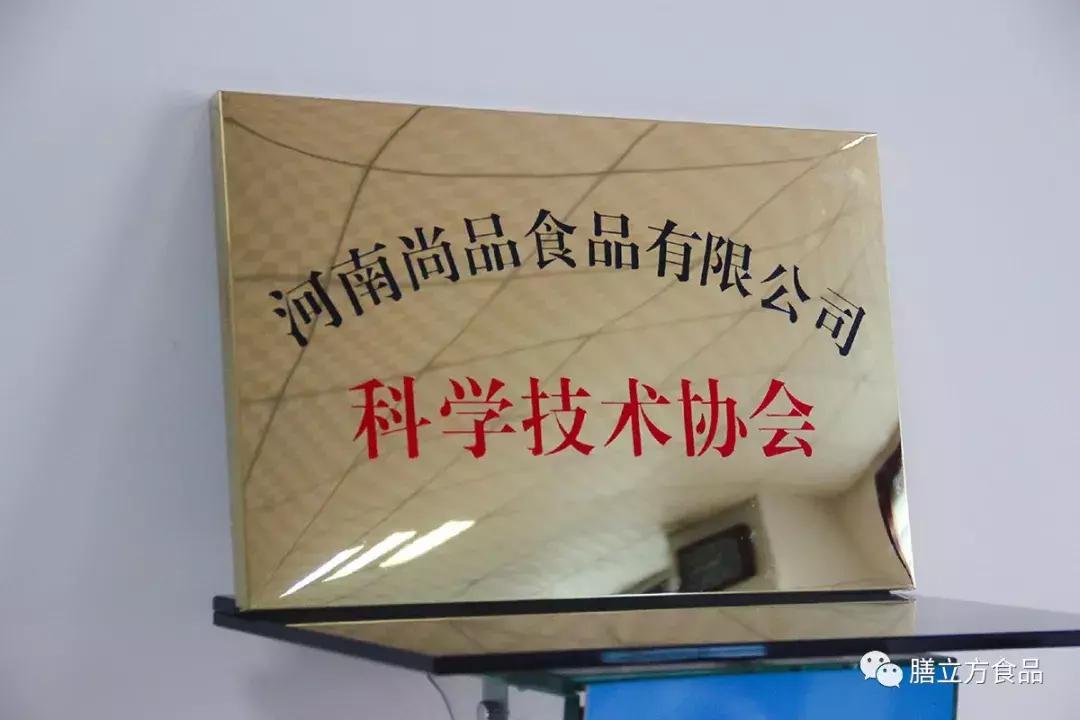 河南尚品食品有限公司
科学技术协会
膳立方食品